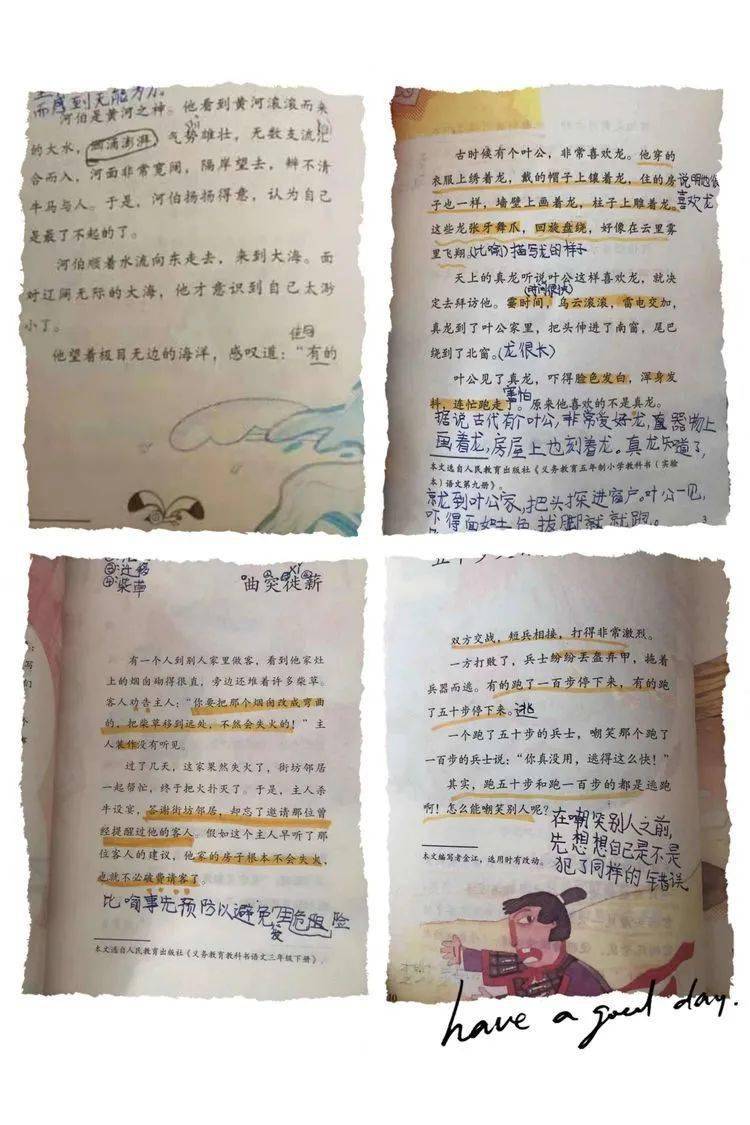 而感到无能为力
河伯是黄河之神。他看到黄河滚滚而来
的大水，汹涌澎湃，气势雄壮，无数支流汇
合而入，河面非常宽阔，隔岸望去，辨不清
牛马与人。于是，河伯扬扬得意，认为自己
是最了不起的了。
河伯顺着水流向东走去，来到大海。面
对辽阔无际的大海，他才意识到自己太渺
小了。
他望着极目无边的海洋，感叹道：“有的
古时候有个叶公，非常喜欢龙。他穿的
衣服上绣着龙，戴的帽子上镶着龙，住的房
说明他很
子也一样，墙壁上画着龙，柱子上雕着龙。
喜欢龙
这些龙张牙舞爪，回旋盘绕，好像在云里雾
里飞翔。
(比喻)描写龙的样子
天上的真龙听说叶公这样喜欢龙，就决
(时间很快)
定去拜访他。霎时间，乌云滚滚，雷电交加，
真龙到了叶公家里，把头伸进了南窗，尾巴
绕到了北窗。
(龙很长)
叶公见了真龙，吓得脸色发白，浑身发
抖，连忙跑走了。原来他喜欢的不是真龙。
害怕
据说古代有个叶公，非常爱好龙，直器物上
画着龙，房屋上也刻着龙。真龙知道了，
本文选自人民教育出版社《义务教育五年制小学教科书（实验
本）语文第九册》。
就到叶公家，把头探进窗户。叶公一见，
吓得面如土色，拔脚就就跑。
3
②迁移
④柴草
曲突徙薪
xǐ
有一个人到别人家里做客，看到他家灶
上的烟囱砌得很直，旁边还堆着许多柴草。
客人劝告主人：“你要把那个烟囱改成弯曲
的，把柴草移到远处，不然会失火的！”主
人装作没有听见。
过了几天，这家果然失火了，街坊邻居
一起帮忙，终于把火扑灭了。于是，主人杀
牛设宴，答谢街坊邻居，却忘了邀请那位曾
经提醒过他的客人。假如这个主人早听了那
位客人的建议，他家的房子根本不会失火，
也就不必破费请客了。
比喻事先预防以避免发生危险
本文选自人民教育出版社《义务教育教科书语文三年级下册》。
双方交战，短兵相接，打得非常激烈。
一方打败了，兵士纷纷丢盔弃甲，拖着
兵器而逃。有的跑了一百步停下来，有的跑
了五十步停下来。
逃
一个跑了五十步的兵士，嘲笑那个跑了
一百步的兵士说：“你真没用，逃得这么快！”
其实，跑五十步和跑一百步的都是逃跑
啊！怎么能嘲笑别人呢？
在嘲笑别人之前，
先想想自己是不是
犯了同样的错误
本文编写者金江，选用时有改动。
have a good day.